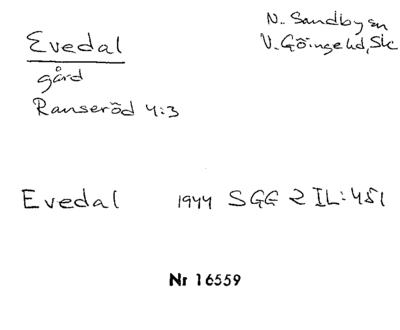 Evedal
gård
Ranseröd 4:3
N. Sandby sn
V. Göinge hd, Sk
Evedal 1944 SGG 2 IL:451
Nr 16559